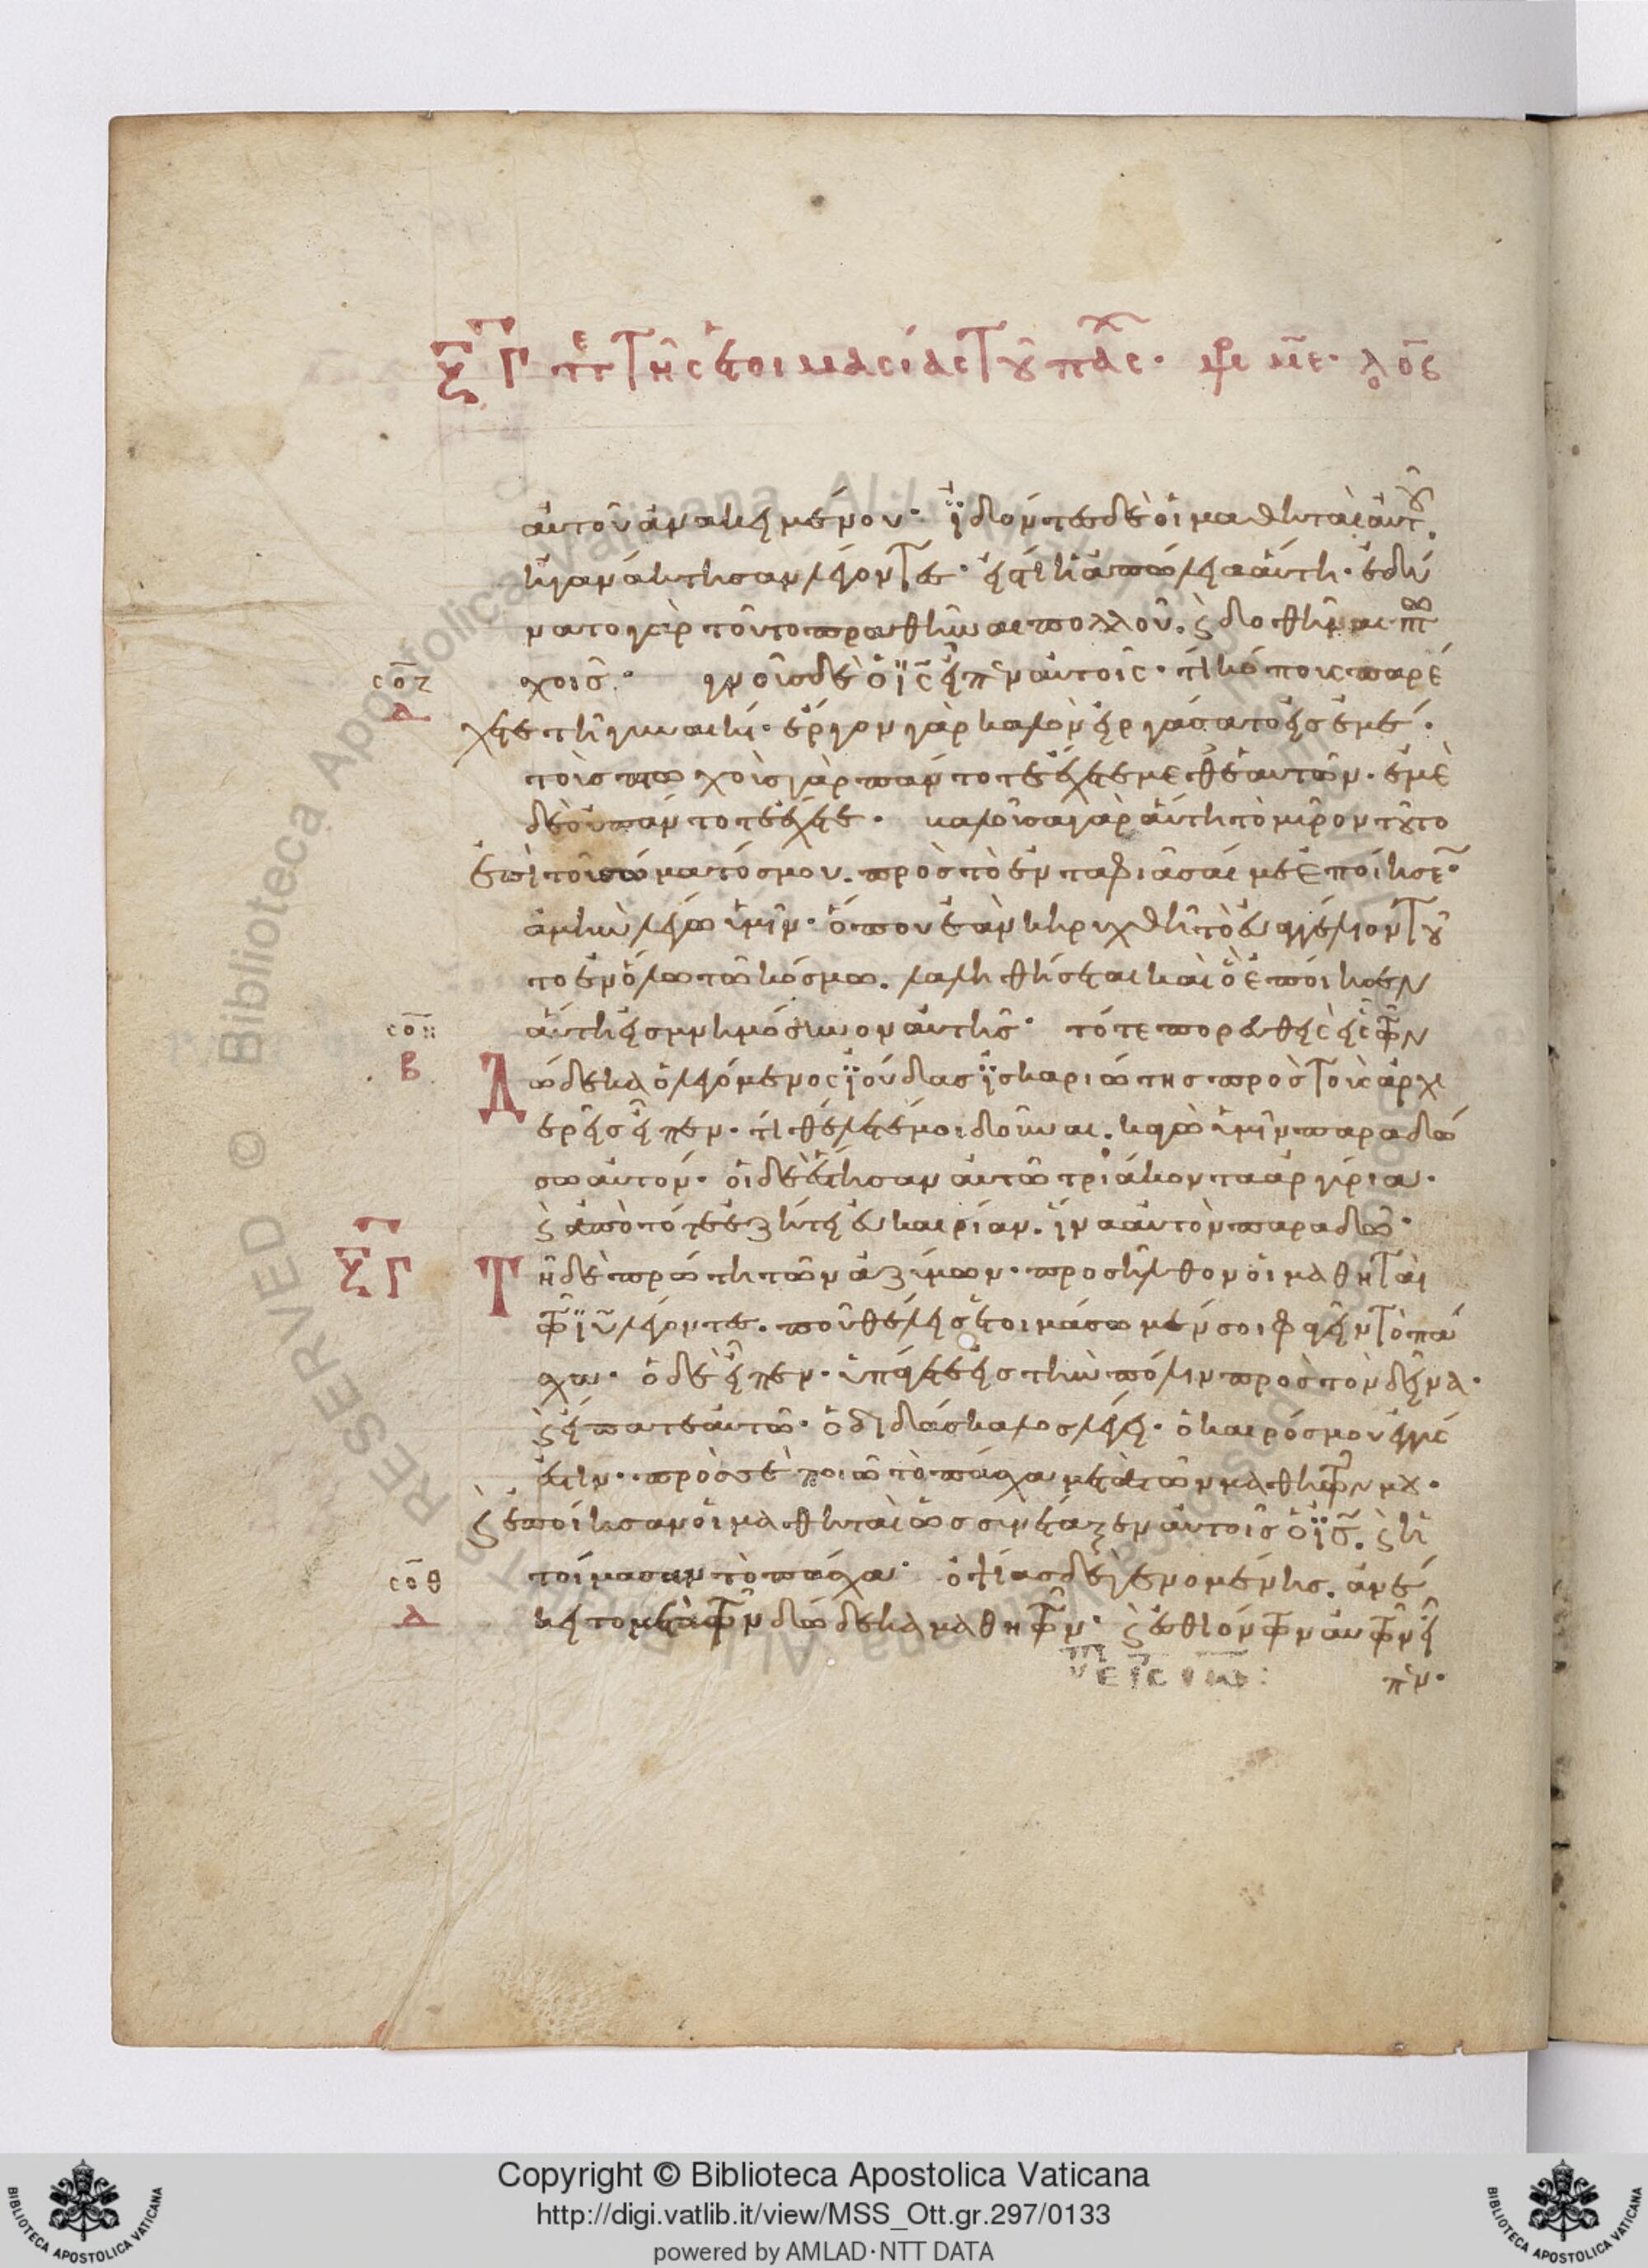 ξγ πε τῆς ἑτοιμασίας τοῦ πάσχ. με. λο ος
αὐτοῦ ἀνακειμένου· ἰδόντες δὲ οἱ μαθηταὶ αὐτοῦ.
ἠγανάκτησαν λέγοντες· εἰς τί ἡ ἀπώλεια αὕτη· ἐδύ
νατο γὰρ τοῦτο πραθῆναι πολλοῦ. ϛ δοθῆναι πτω
σοζ χοῖς· γνοὺς δὲ ὁ ις εἶπεν αὐτοῖς· τί κόπους παρέ
δ
χετε τῇ γυναικί· ἔργον γὰρ καλὸν εἰργάσατο εἰς ἐμέ·
τοὺς πτωχοὺς γὰρ πάντοτε ἔχετε μεθ' ἑαυτῶν· ἐμὲ
δὲ οὐ πάντοτε ἔχετε· βαλοῦσα γὰρ αὕτη τὸ μύρον τοῦτο
ἐπὶ τοῦ σώματός μου. πρὸς τὸ ἐνταφιάσαι με ἐποίησε·
ἀμὴν λέγω ὑμῖν· ὅπου ἐὰν κηρυχθῇ τὸ εὐαγγέλιον τοῦ
το ἐν ὅλω τῶ κόσμω. λαληθήσεται καὶ ὃ ἐποίησεν
σοη αὕτη εἰς μνημόσυνον αὐτῆς· τότε πορευθεὶς εἷς τῶν
β Δώδεκα ὁ λεγόμενος ἰούδας ἰσκαριώτης πρὸς τοὺς ἀρχι
ερεῖς εἶπεν· τί θέλετέ μοι δοῦναι. κἀγὼ ὑμῖν παραδώ
σω αὐτόν· οἱ δὲ ἔστησαν αὐτῶ τριάκοντα ἀργύρια·
ϛ ἀπὸ τότε ἐζήτει εὐκαιρίαν. ἵνα αὐτὸν παραδῶ·
ξγ Τῆ δὲ πρώτη τῶν ἀζύμων· προσῆλθον οἱ μαθηταὶ
τῶ ιυ λέγοντες. ποῦ θέλεις ἑτοιμάσωμέν σοι φαγεῖν τὸ πά
σχα· ὁ δὲ εἶπεν· ὑπάγετε εἰς τὴν πόλιν πρὸς τὸν δεῖνα·
ϛ εἴπατε αὐτῶ· ὁ διδάσκαλος λέγει· ὁ καιρός μου ἐγγύς
ἐστιν· πρὸς σὲ ποιῶ τὸ πάσχα μετὰ τῶν μαθητῶν μου·
ϛ ἐποίησαν οἱ μαθηταὶ ὡς συνέταξεν αὐτοῖς ὁ ις. ϛ ἡ
σοθ τοίμασαν τὸ πάσχα· ὀψίας δὲ γενομένης. ἀνέ
δ κειτο μετὰ τῶν δώδεκα μαθητῶν· ϛ ἐσθιόντων αὐτῶν εἶ
πεν·